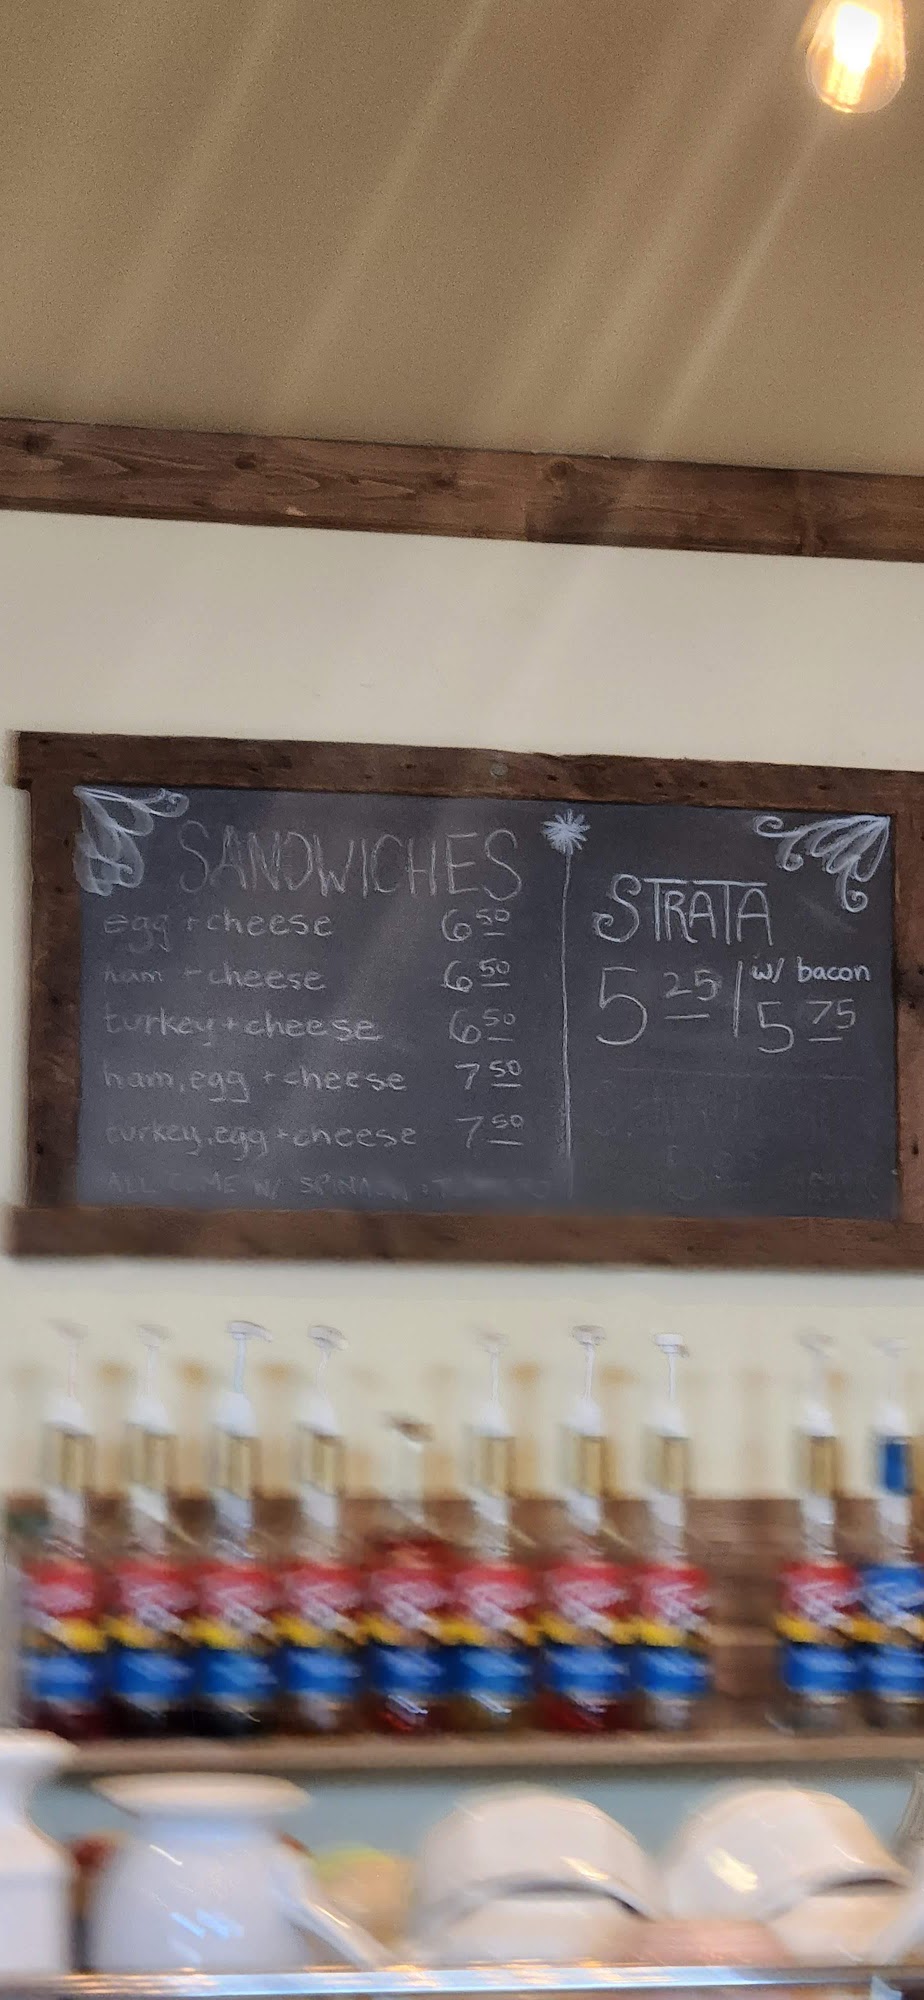 SANDWICHES
egg + cheese 6 50
ham + cheese 6 50
turkey + cheese 6 50
ham, egg + cheese 7 50
turkey, egg + cheese 7 50
ALL COME W/
STRATA
5 25 | w/ bacon
5 75